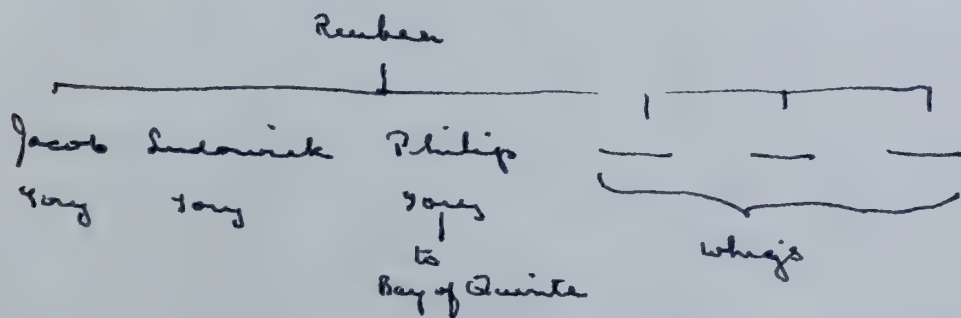 Reuben
Jacob Ludowick Philip
Tory Tory Tory
Whigs
to
Bay of Quinte